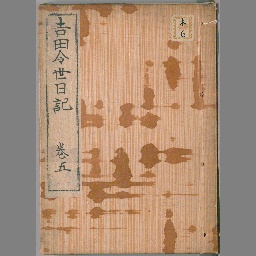 吉田令世日記
巻五
本
6